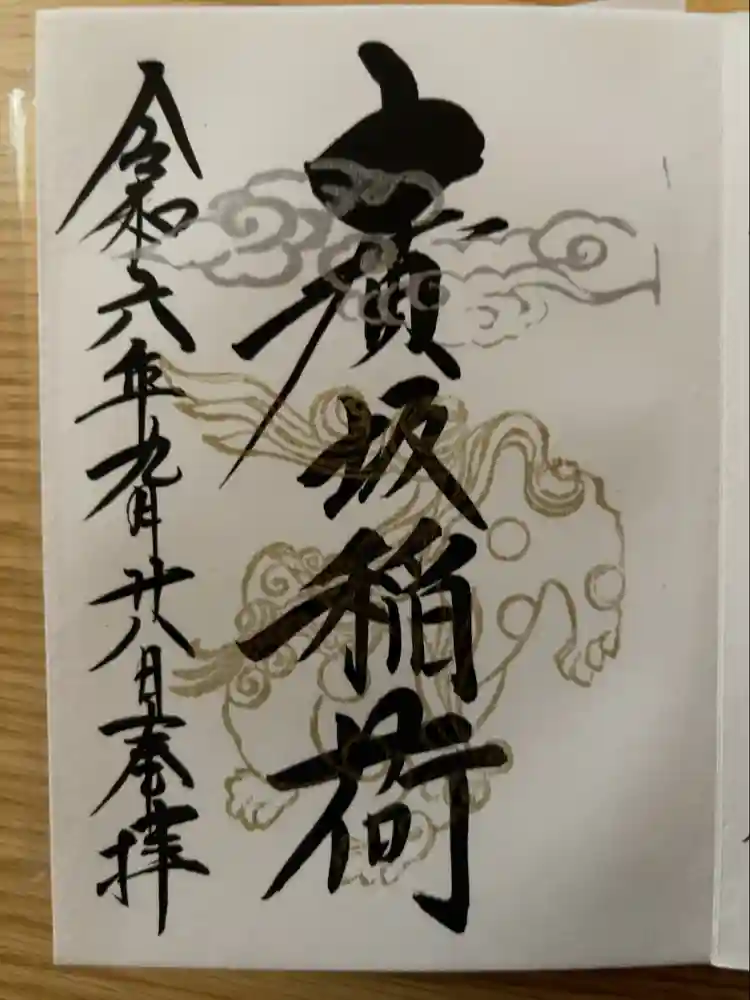 廣坂稲荷
令和六年九月廿八日奉拝